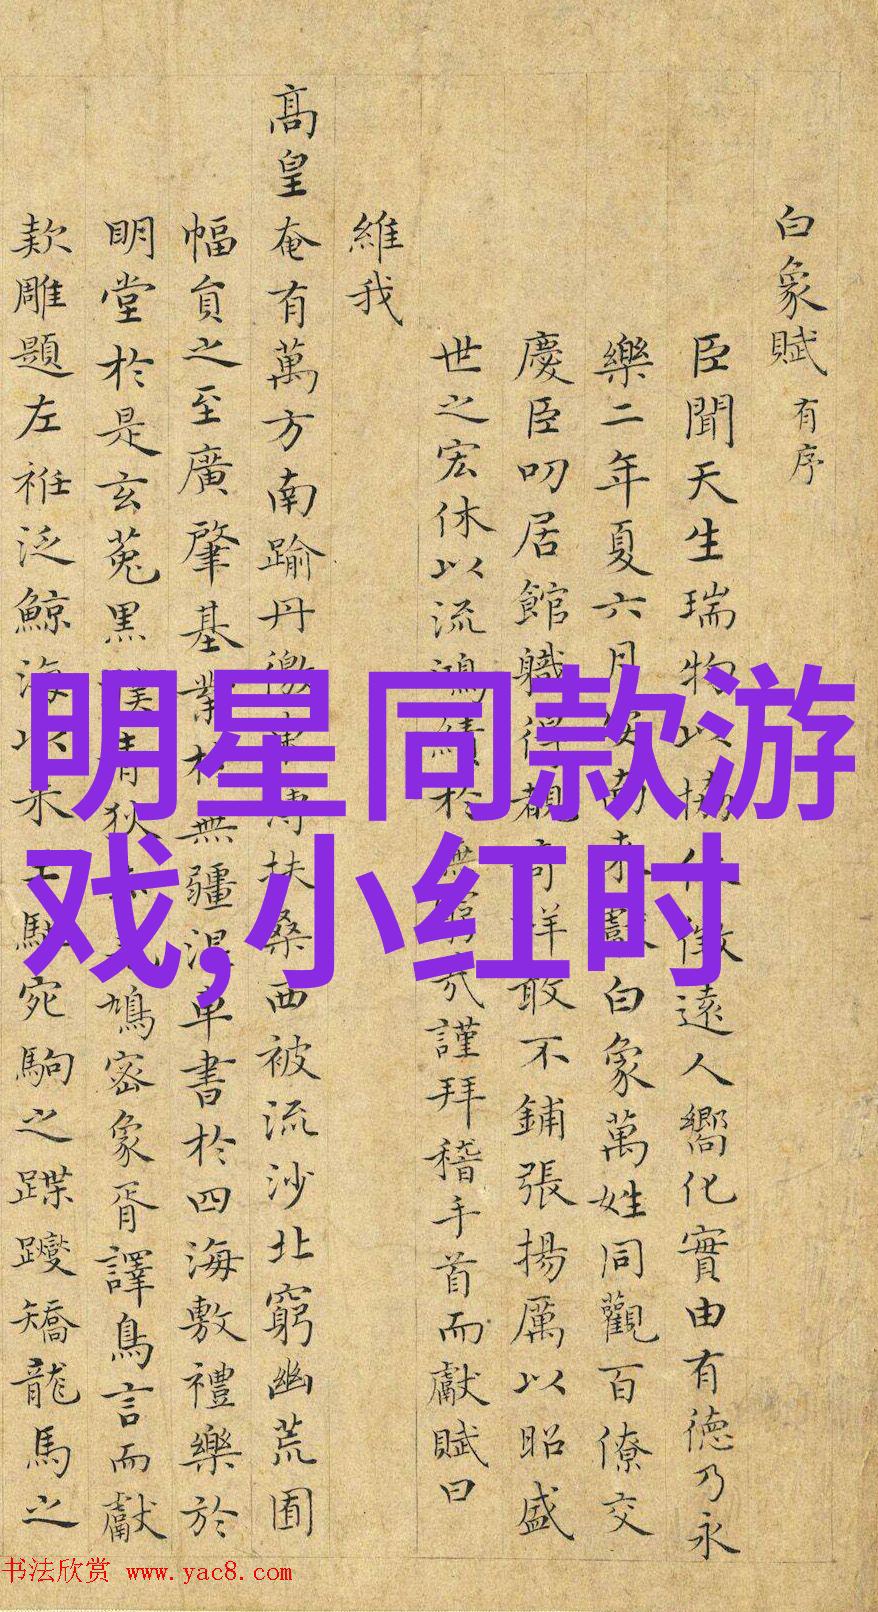 白象賦 有序
臣聞天生瑞物以協休徵遠人嚮化實由有德乃永
樂二年夏六月安南來獻白象萬姓同觀百僚交
慶臣叨居館職得覩奇祥敢不鋪張揚厲以昭盛
世之宏休以流鴻績於無窮哉謹拜稽手首而獻賦曰
維我
髙皇奄有萬方南踰丹徼東扶桑西被流沙北窮幽荒囿
幅員之至廣肇基業於無疆混車書於四海敷禮樂於
明堂於是玄菟黑青狄鳩密象胥譯鳥言而獻
款雕題左衽泛鯨海以來王宛駒之蹀躞矯龍馬之
明星同款游
戏,小红时
书法欣赏 www.yac8.com